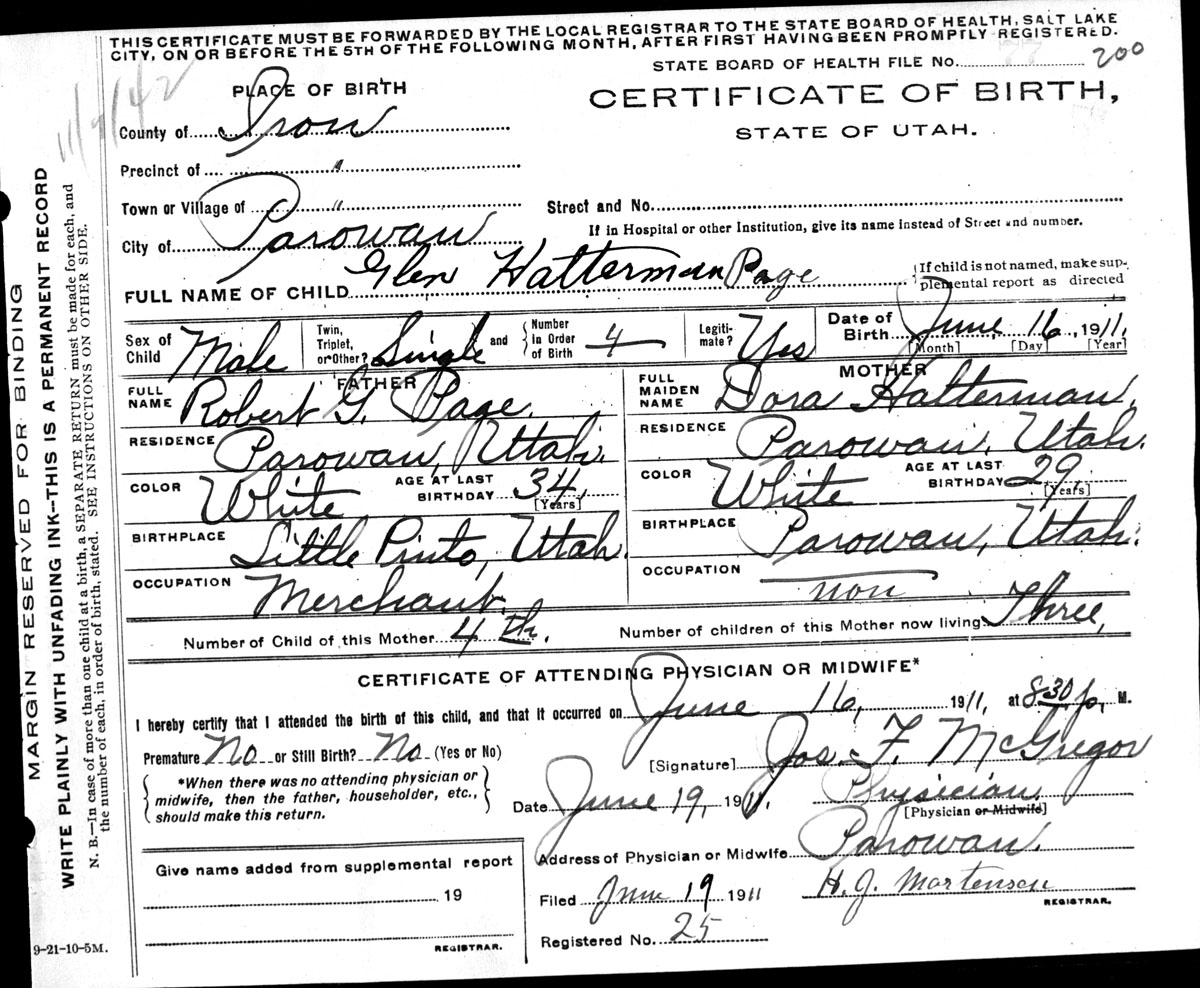 THIS CERTIFICATE MUST BE FORWARDED BY THE LOCAL REGISTRAR TO THE STATE BOARD OF HEALTH, SALT LAKE
CITY, ON OR BEFORE THE 5TH OF THE FOLLOWING MONTH, AFTER FIRST HAVING BEEN PROMPTLY REGISTERED.
STATE BOARD OF HEALTH FILE No. 200
11/9/42
PLACE OF BIRTH
CERTIFICATE OF BIRTH,
STATE OF UTAH.
County of Iron
Precinct of "
Town or Village of "
Street and No.
City of Parowan
If in Hospital or other Institution, give its name instead of Street and number.
FULL NAME OF CHILD Glen Halterman Page
{If child is not named, make sup-
plemental report as directed
Sex of Child Male
Twin, Triplet, or Other? Single and {Number In Order of Birth 4
Legiti-mate? Yes
Date of Birth June 16, 1911.
[Month] [Day] [Year]
FATHER
MOTHER
FULL NAME Robert G. Page.
FULL MAIDEN NAME Dora Halterman.
RESIDENCE Parowan, Utah.
RESIDENCE Parowan, Utah.
COLOR White AGE AT LAST BIRTHDAY 34 [Years]
COLOR White AGE AT LAST BIRTHDAY 29 [Years]
BIRTHPLACE Little Pinto, Utah.
BIRTHPLACE Parowan, Utah.
OCCUPATION Merchant.
OCCUPATION non
Number of Child of this Mother 4th.
Number of children of this Mother now living Three,
CERTIFICATE OF ATTENDING PHYSICIAN OR MIDWIFE*
I hereby certify that I attended the birth of this child, and that it occurred on June 16, 1911, at 8-30 p, M.
Premature No or Still Birth? No (Yes or No)
[Signature] Jos. F. McGregor
{*When there was no attending physician or
midwife, then the father, householder, etc.,
should make this return.}
Date June 19, 1911.
Physician
[Physician or Midwife]
Address of Physician or Midwife Parowan.
Give name added from supplemental report
19
REGISTRAR.
Filed June 19 1911
H. J. Mortensen
REGISTRAR.
Registered No. 25
9-21-10-5M.
MARGIN RESERVED FOR BINDING
WRITE PLAINLY WITH UNFADING INK--THIS IS A PERMANENT RECORD
N. B.—In case of more than one child at a birth, a SEPARATE RETURN must be made for each, and
the number of each, in order of birth, stated. SEE INSTRUCTIONS ON OTHER SIDE.